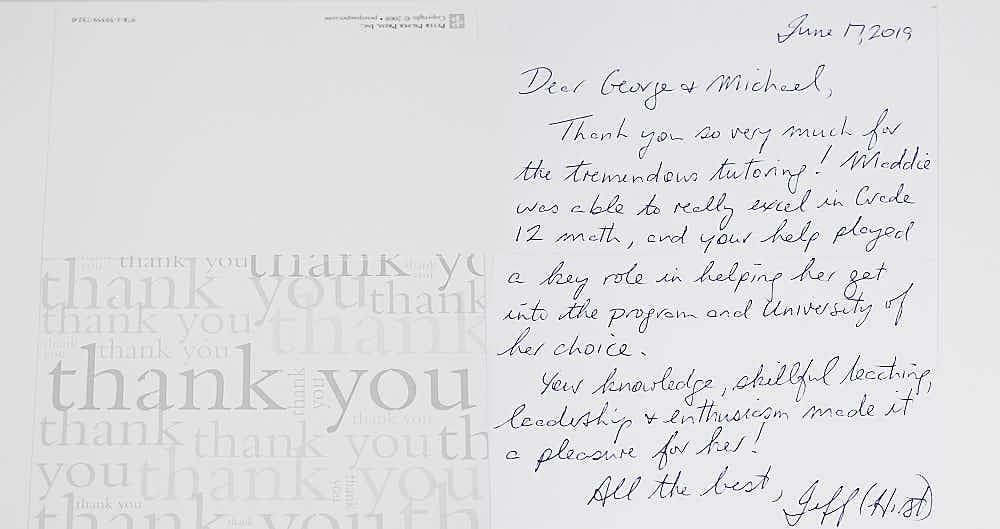 Peter Pauper Press, Inc.
June 17, 2019
Dear George & Michael,
Thank you so very much for
the tremendous tutoring! Maddie
was able to really excel in Grade
12 math, and your help played
a key role in helping her get
into the program and University of
her choice.
Your knowledge, skillful teaching,
leadership & enthusiasm made it
a pleasure for her!
All the best, Jeff (Hirst)
thank you thank you
you thank
thank you thank
thank you thank
thank you
thank you
thank you
thank you
thank you th
you thank you
thank you
thank